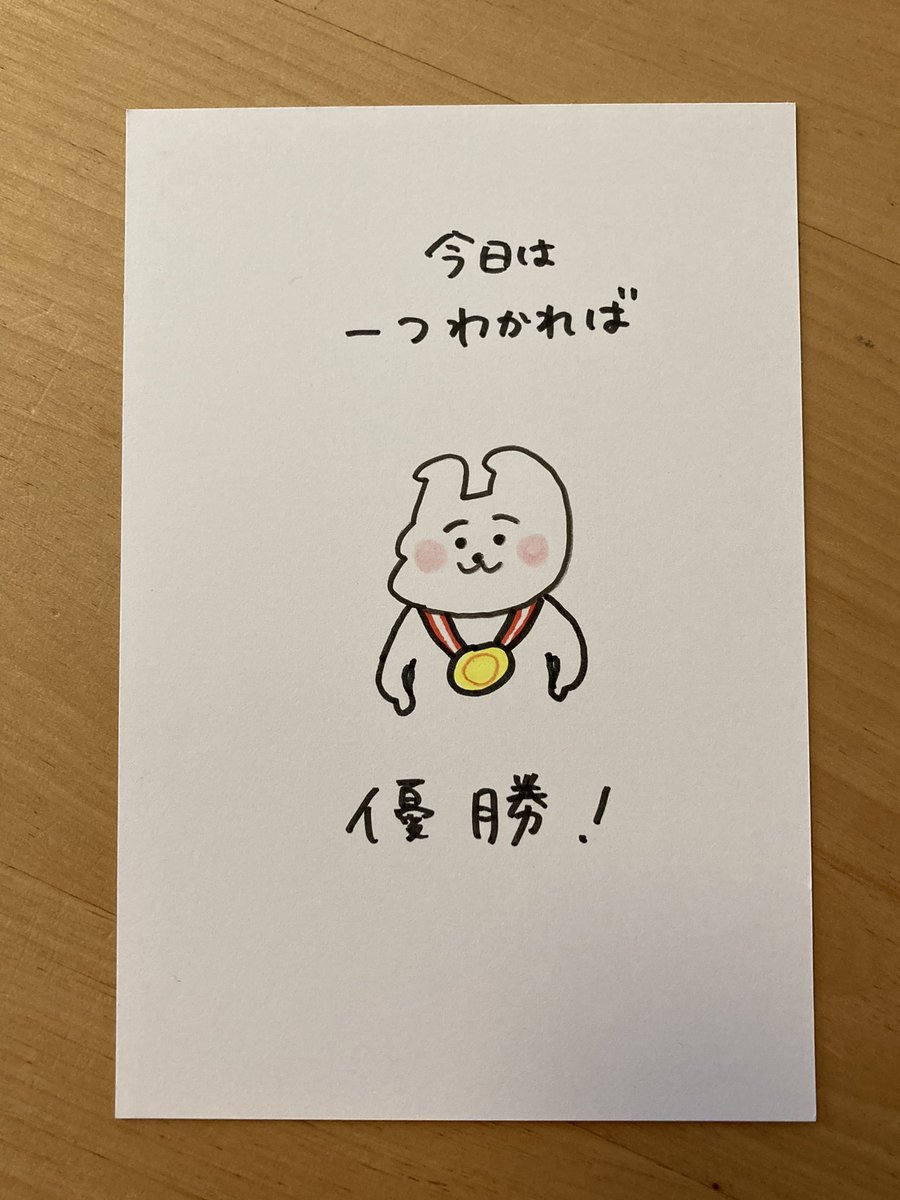 今日は
一つわかれば
優勝!